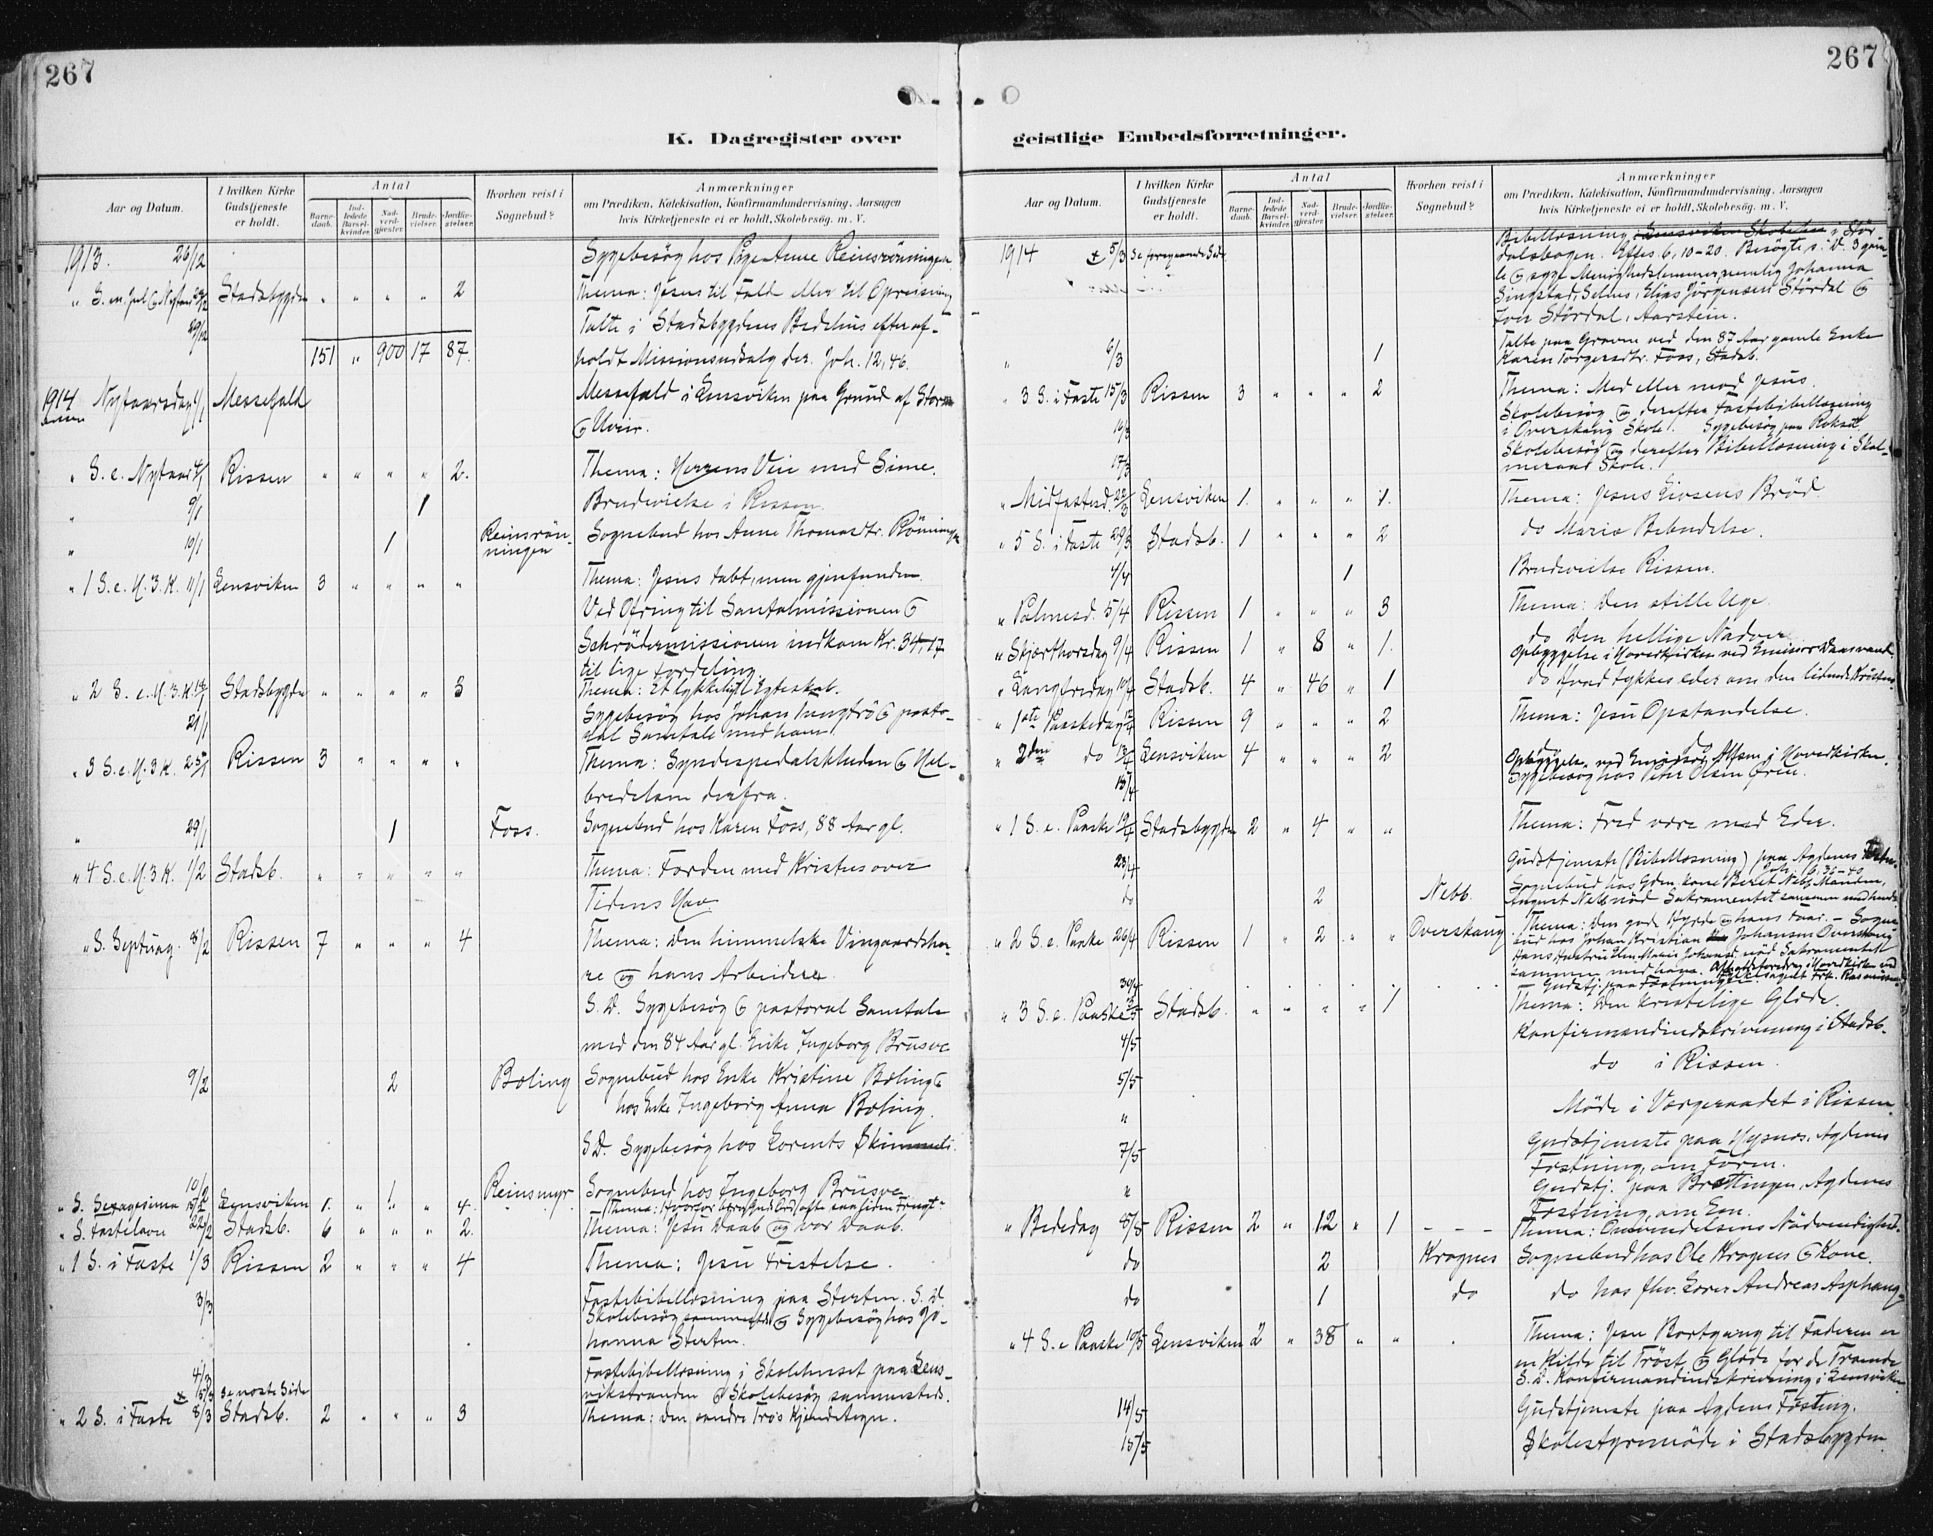 267
267
K. Dagregister over
geistlige Embedsforretninger.
Aar og Datum.
I hvilken Kirke Gudstjeneste er holdt.
Antal
Barnedaab.
Indledede Barselkvinder.
Nadverdgjæster.
Brudevielser.
Jordfæstelser.
Hvorhen reist i Sognebud?
Anmærkninger
om Prædiken, Katekisation, Konfirmandundervisning, Aarsagen
hvis Kirketjeneste ei er holdt, Skolebesøg. m. V.
1913. 26/12 Sygebesøg hos Pige Anne Reinsrönningen
" S. m. Jul & Nytaar 28/12 Stadsbygden " " " " 2 Thema: Jesus til Fald eller til Opreisning
29/12 Talte i Stadsbygdens Bedehus efter af-
151 " 900 17 87. holdt Missionsudsalg der. Joh. 12,46.
1914 Nytaarsdag 1/1 Messefald Messefald i Lensviken paa Grund af Storm
& Uveir.
" S. e. Nytaar 4/1 Rissen " " " " 2. Thema: Herrens Veie med Sine.
" 9/1 1 Brudevielse i Rissen.
" 10/1 1 Reinsrön- Sognebud hos Anne Thomasdtr. Röningen
ningen
" 1 S. e. H. 3. K. 11/1 Lensviken 3 " " " " Thema: Jesus tabt, men gjenfunden.
Ved Ofring til Santalmissionen &
Schrödermissionen indkom Kr. 34,17
til lige Fordeling.
" 2 S. e. H. 3. K. 18/1 Stadsbygden " " " " 3 Thema: Et lykkeligt Egteskab.
21/1 Sygebesøg hos Johan & pasto-
ral Samtale med ham.
" 3 S. e. H. 3 K. 25/1 Rissen 3 " " " " Thema: Syndespedalskheden & Hel-
bredelsen derfra.
" 29/1 1 Foss. Sognebud hos Karen Foss, 88 Aar gl.
" 4 S. e. H. 3 K. 1/2 Stadsb. " " " " " Thema: Færden med Kristus over
Tidens Hav.
" S. Septuag. 8/2 Rissen 7 " " " 4 Thema: Den himmelske Vingaardsher-
re og hans Arbeidere.
S. D. Sygebesøg & pastoral Samtale
med den 84 Aar gl. Enke Ingeborg Brusve
9/2 2 Bøling Sognebud hos Enke Kristine Bøling &
hos Enke Ingeborg Anna Bøling.
S. D. Sygebesøg hos Lorents
10/2 1 Reinsmyr. Sognebud hos Ingeborg Brusve
" S. Sexagesima 15/2 Lensviken 1. " " " 4. Thema: Hvorfor bærer Guds Ord ofte saa liden Frugt.
" S. Fastelavn 22/2 Stadsb. 6 " " " 2. Thema: Jesu Daab og vor Daab.
" 1 S. i Faste 1/3 Rissen 2 " " " 4 Thema: Jesu Fristelse.
3/3 Fastebibellæsning paa Sterten. S. D.
Skolebesøg sammesteds & Sygebesøg hos Jo-
hanna Sterten.
4/3 Fastebibellæsning i Skolehuset paa Lens-
+ 5/3 Se næste Side vikstranden & Skolebesøg sammesteds.
" 2 S. i Faste 8/3 Stadsb. 2 " " " 3 Thema: Den sande Tro's Kjendetegn.
Aar og Datum.
I hvilken Kirke Gudstjeneste er holdt.
Antal
Barnedaab.
Indledede Barselkvinder.
Nadverdgjæster.
Brudevielser.
Jordfæstelser.
Hvorhen reist i Sognebud?
Anmærkninger
om Prædiken, Katekisation, Konfirmandundervisning, Aarsagen
hvis Kirketjeneste ei er holdt, Skolebesøg. m. V.
1914 + 5/3 Se foregaaende Side Bibellæsning i Stör-
dalsbogen. Efes. 6, 10-20. Besøgte s. D. 3 gam-
le & syge Menighedslemmer nemlig Johanna
Singstad, Selnes, Elias Jørgensen Stördal &
Iver Stördal, Aarstein.
" 6/3 1 Talte paa Graven ved den 87 Aar gamle Enke
Karen Torgersdtr. Foss, Stadsb.
" 3 S. i Faste 15/3 Rissen 3 " " " 2 Thema: Med eller mod Jesus.
16/3 Skolebesøg & derefter Fastebibellæsning
i Overskaug Skole. Sygebesøg paa Rokset.
17/3 Skolebesøg og derefter Bibellæsning i Skol-
meraas Skole.
" Midfasted. 22/3 Lensviken 1. " " " 1. Thema: Jesus Livsens Brød
" 5 S. i Faste 29/3 Stadsb. 1 " " " 2 do Mariæ Bebudelse.
4/4 1 Brudevielse Rissen.
" Palmesd. 5/4 Rissen 1 " " " 3 Thema: Den stille Uge.
" Skjærthorsdag 9/4 Rissen 1 " 8 " 1. do Den hellige Nadver.
Opbyggelse i Hovedkirken ved Emissær
" Langfredag 10/4 Stadsb. 4 " 46 " 1 do Hvad tykkes eder om den lidende Kristus.
" 1ste Paaskedag 12/4 Rissen 9 " " " 2 Thema: Jesu Opstandelse.
" 2den do 13/4 Lensviken 4 " " " 2 do do
Opbyggelse ved Emissær Alfsen i Hovedkirken.
15/4 Sygebesøg hos Peter Olsen Øien.
" 1 S. e. Paaske 19/4 Stadsbygden 2 " 4 " " Thema: Fred være med Eder.
23/4 Gudstjeneste (Bibellæsning) paa Agdenes
do 2 Nebb. Sognebud hos Gdm. kone Beret Nebb. Manden,
August Nebb nød Sakramentet sammen med hende.
" 2 S. e. Paaske 26/4 Rissen 1 " 2 " " Overskaug. Thema: Den gode Hyrde og hans Faar. – Sogne-
bud hos Johan Kristian Johansen Overskaug
Hans Hustru Elen Marie Johansd. nød Sakramentet
sammen med ham.
30/4 Gudstj. paa Fæstningen.
" 3 S. e. Paaske 3/5 Stadsb. " " " " 1 Thema: Den kristelige Glæde.
4/5 Konfirmandindskrivning i Stadsb.
5/5 do i Rissen.
" Møde i Værgeraadet i Rissen.
7/5 Gudstjeneste paa Hysnes, Agdenes
Fæstning, om Form.
" Gudstj. paa Brettingen, Agdenes
Fæstning, om Em.
" Bededag 8/5 Rissen 2 " 12 " 1 – – – Thema: Omvendelsens Nödvendighed.
do 2 Kragnes Sognebud hos Ole Kragnes & Kone.
do 1 do do hos fhv. Lærer Andreas Asphaug
" 4 S. e Paaske 10/5 Lensviken 2 " 38 " " Thema: Jesu Bortgang til Faderen er
en Kilde til Trøst & Glæde for de Troende
S. D. Konfirmandindskrivning i Lensviken
14/5 Gudstjeneste paa Agdenes Fæsting.
15/5 Skolestyremöde i Stadsbygden